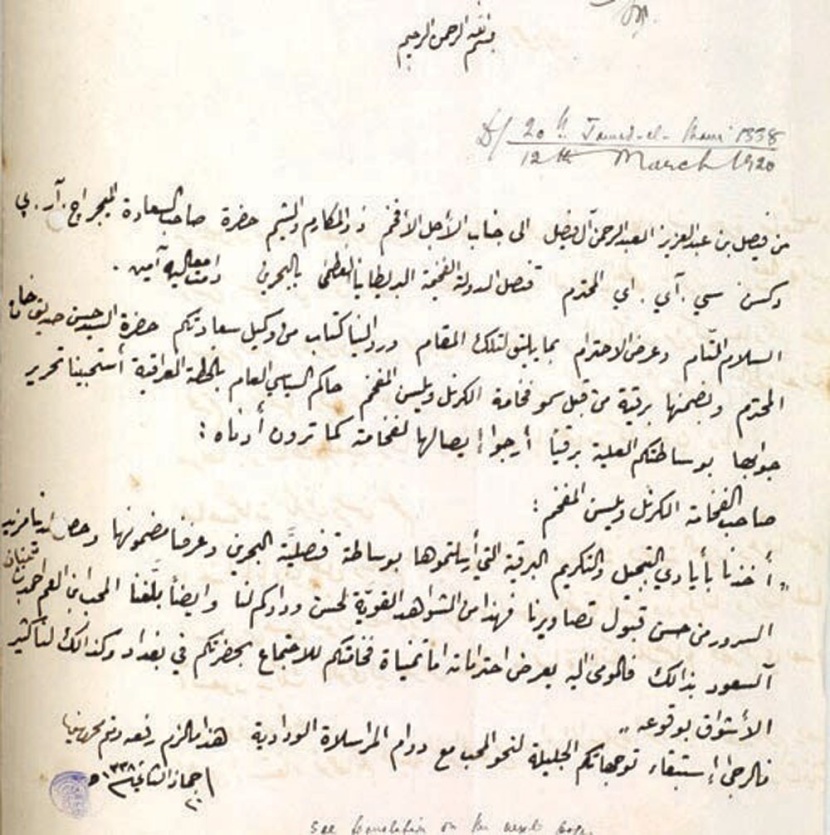 بسم الله الرحمن الرحيم
D/ 20th Jamad-el-Thani 1338
12th March 1920
من فيصل بن عبدالعزيز العبدالرحمن آل فيصل الى جناب الأجل الأفخم ذو المكارم والشيم حضرة صاحب السعادة الميجر اج. آر. پي
دكسن سي. آي. اي المحترم قنصل الدولة الفخيمة البريطانيا العظمى بالبحرين دامت معاليه آمين .
السلام التام وعرض الاحترام بما يليق لتلك المقام ورد الينا كتاب من وكيل سعادتكم حضرة السيد حسن صديق خان
المحترم وبضمنها برقية من قبل سمو فخامة الكرنل ويلسن المفخم حاكم السياسي العام بالخطة العراقية أستجبينا تحرير
جوابها بوساطتكم العلية برقياً أرجوا إيصالها لفخامته كما ترون أدناه :
صاحب الفخامة الكرنل ويلسن المفخم :
„ أخذنا بأيادي التبجيل والتكريم البرقية التي أرسلتموها بوساطة قنصلية البحرين وعرفنا مضمونها وحصل لدينا مزيد
السرور من حسن قبول تصاويرنا فهذا من الشواهد القوية لحسن ودادكم لنا وايضاً بلغنا المحب ابن العم احمد بن ثنيان
آلسعود بذالك فالمومى اليه يعرض احتراماته اما تمنياة فخامتكم للاجتماع بحضرتكم في بغداد وكذالك لنا كثير
الأشواق بوقوعه „
فالرجا إستبقاء توجهاتكم الجليلة لنحو المحب مع دوام المراسلاة الودادية هذا مالزم رفعه ودتم محروسين
٢٠ جماد الثاني ١٣٣٨
see translation on the next page